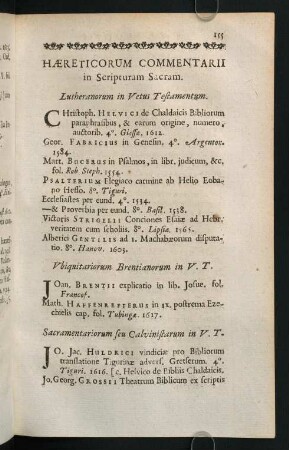 155
HÆRETICORUM COMMENTARII
in Scripturam Sacram.
Lutheranorum in Vetus Testamentum.
Christoph. HELVICI de Chaldaicis Bibliorum
paraphrasibus, & earum origine, numero,
auctorib. 4°. Giessæ, 1612.
Geor. FABRICIUS in Genesin. 4°. Argentor.
1584.
Mart. BUCERUS in Psalmos, in libr. judicum, &c.
fol. Rob Steph. 1554.
PSALTERIUM Elegiaco carmine ab Helio Eoba-
no Hesso. 8°. Tiguri.
Ecclesiastes per eund. 4°. 1534.
— & Proverbia per eund. 8°. Basil. 1538.
Victoris STRIGELII Conciones Esaiæ ad Hebr.
veritatem cum scholiis. Lipsiæ. 1565.
Alberici GENTILIS ad 1. Machabæorum disputa-
tio. 8°. Hanov. 1605.
Vbiquitariorum Brentianorum in V. T.
Joan. BRENTII explicatio in lib. Josue. fol.
Francof.
Math. HAFENREFFERUS in 1x. postrema Eze-
chielis cap. fol. Tubingæ. 1617.
Sacramentariorum seu Calvinistarum in V. T.
JO. Jac. HULDRICI vindiciæ pro Bibliorum
translatione Tigurinæ advers. Gretserum. 4°.
Tiguri. 1616. [c. Helvico de Bibliis Chaldaicis.
Jo. Georg. GROSSII Theatrum Biblicum ex scriptis